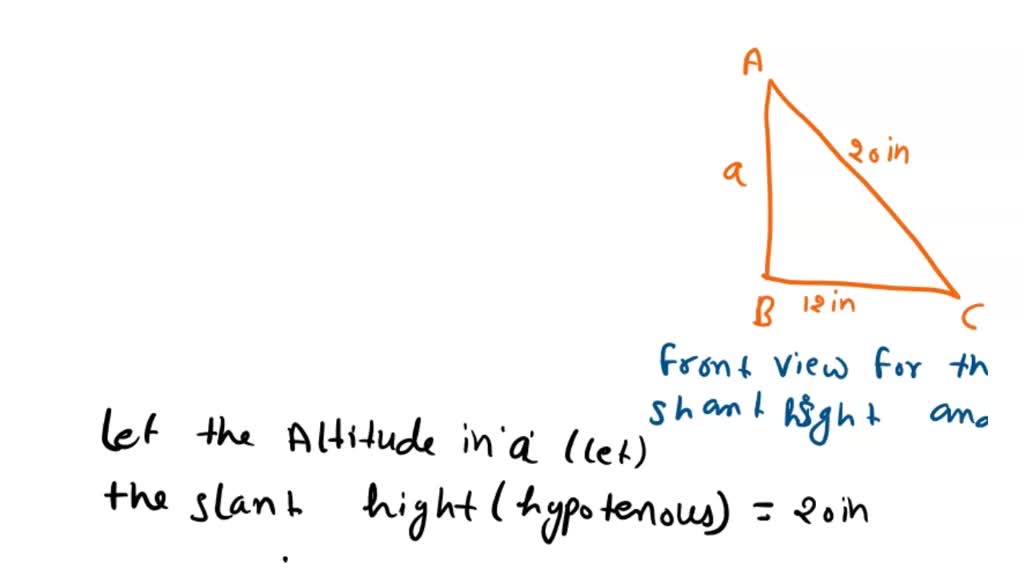 A
20in
a
B
12in
C
front view for th
shant hight and
Let the Altitude in 'a' (let)
the slant hight (hypotenous) = 20in